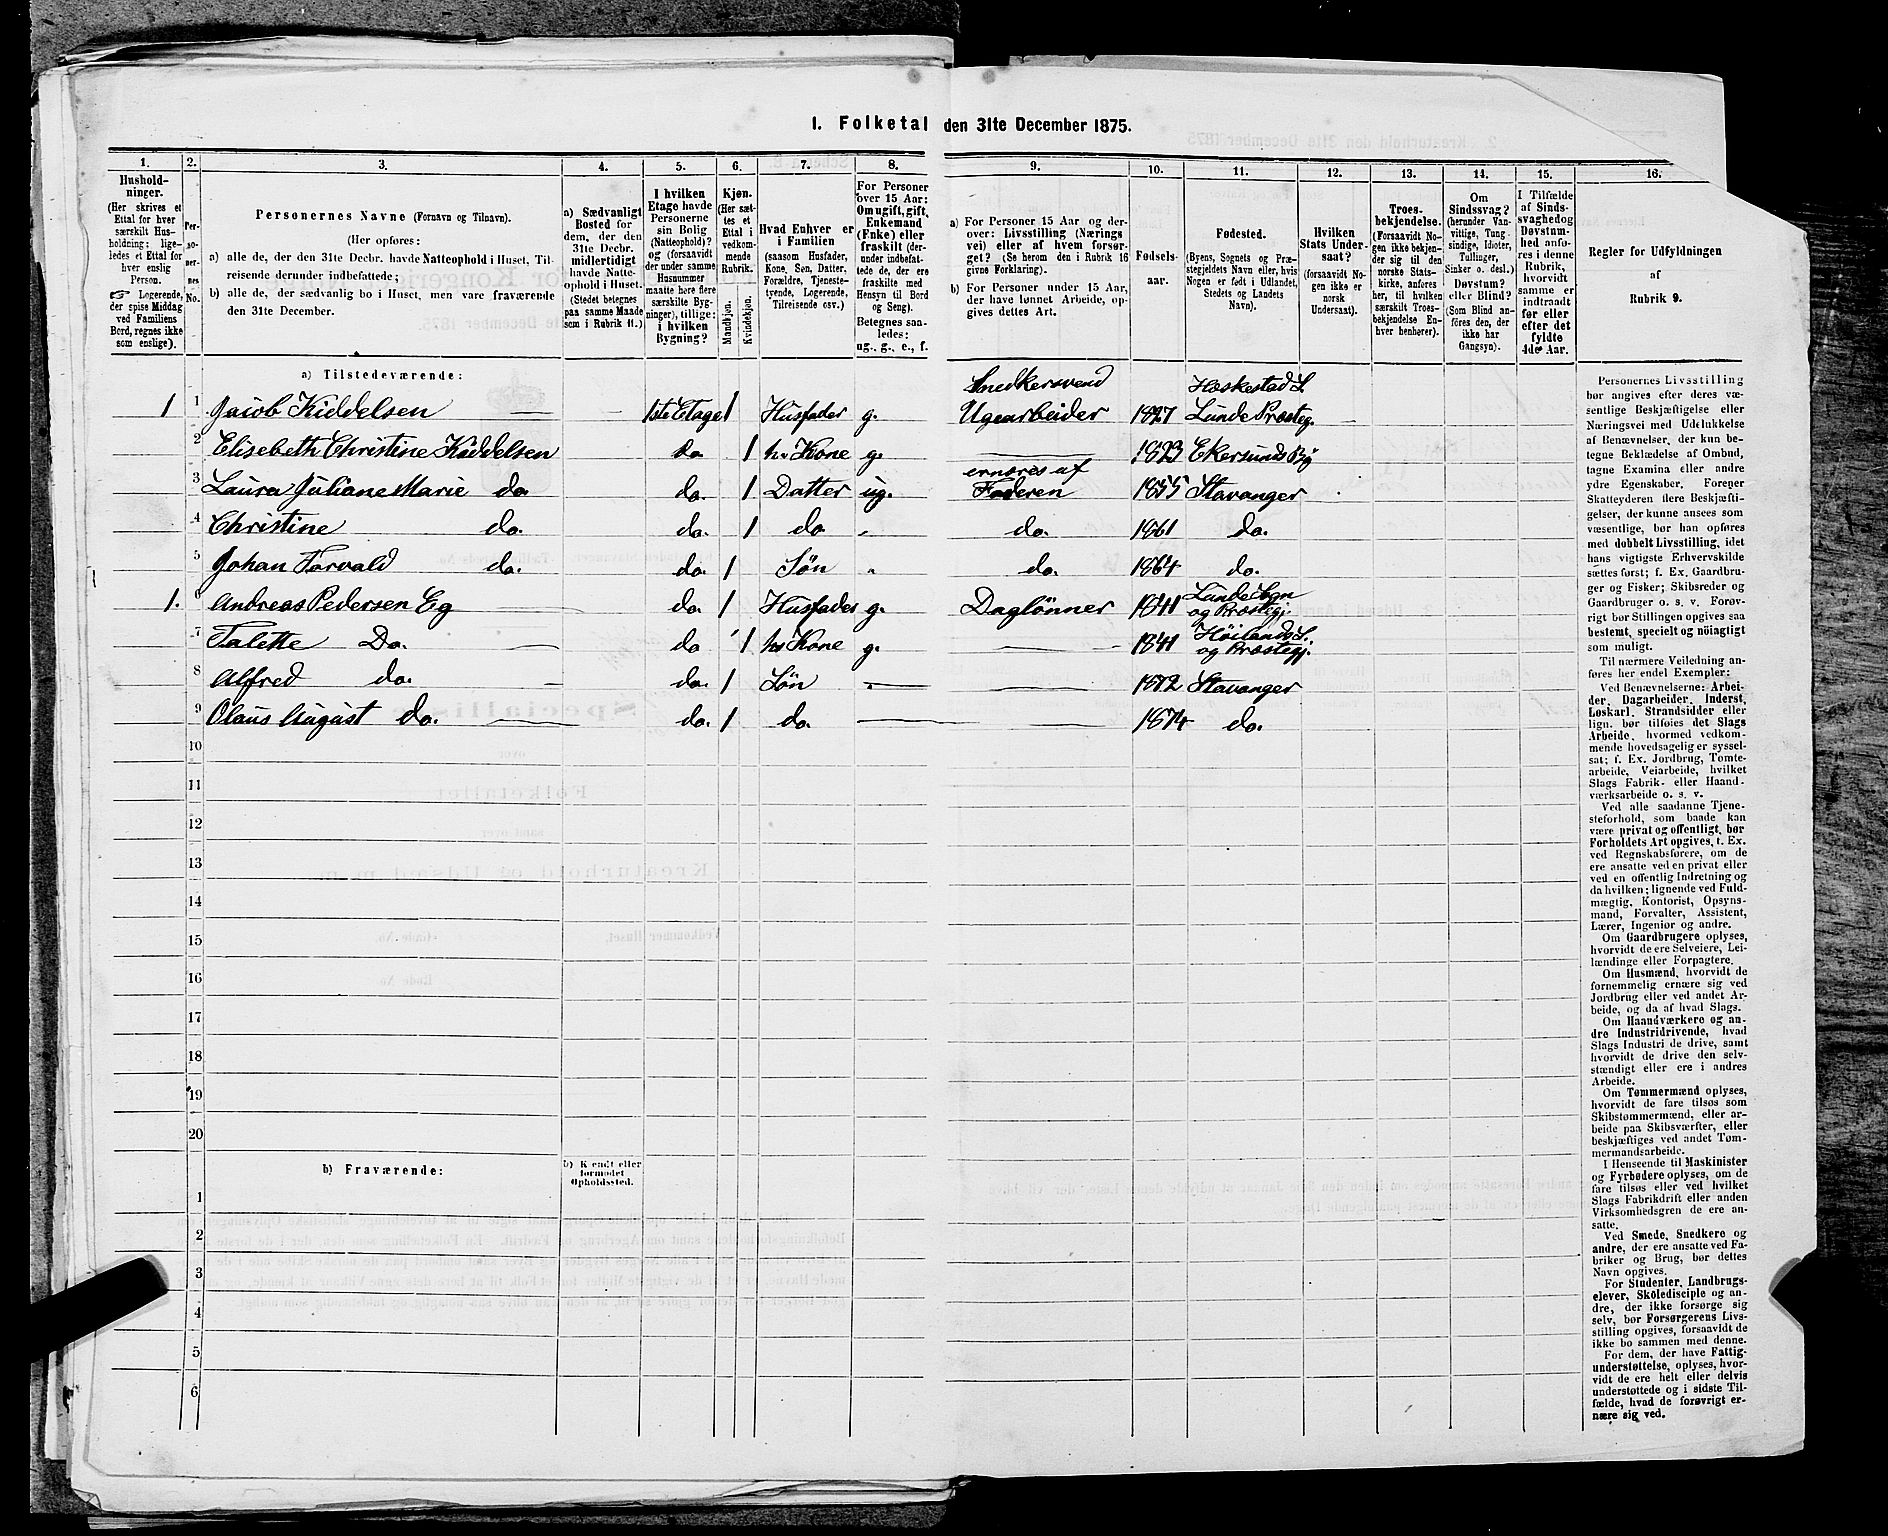 1. Folketal den 31te December 1875.
1. 2. 3. 4. 5. 6. 7. 8. 9. 10. 11. 12. 13. 14. 15. 16.
Hushold-
ninger.
(Her skrives et
Ettal for hver
særskilt Hus-
holdning; lige-
ledes et Ettal for
hver enslig
Person.
☞ Logerende,
der spise Middag
ved Familiens
Bord, regnes ikke
som enslige).
Per-
so-
ner-
nes
No.
Personernes Navne (Fornavn og Tilnavn).
(Her opføres:
a) alle de, der den 31te Decbr. havde Natteophold i Huset, Til-
reisende derunder indbefattede;
b) alle de, der sædvanlig bo i Huset, men vare fraværende
den 31te December.
a) Sædvanligt
Bosted for
dem, der den
31te Decbr.
midlertidigt
havde Natte-
ophold i Huset.
(Stedet betegnes
paa samme Maade
som i Rubrik 11.)
I hvilken
Etage havde
Personerne
sin Bolig
(Natteophold)?
og (forsaavidt
der under samme
Husnummer
maatte høre flere
særskilte Byg-
ninger), tillige:
i hvilken
Bygning?
Kjøn.
(Her sæt-
tes et
Ettal i
vedkom-
mende
Rubrik.
Mandkjøn.
Kvindekjøn.
Hvad Enhver er
i Familien
(saasom Husfader,
Kone, Søn, Datter,
Forældre, Tjeneste-
tyende, Logerende,
Tilreisende osv.)
For Personer
over 15 Aar:
Om ugift, gift,
Enkemand
(Enke) eller
fraskilt (der-
under indbefat-
tede de, der ere
fraskilte med
Hensyn til Bord
og Seng).
Betegnes saa-
ledes:
ug., g., e., f.
a) For Personer 15 Aar og der-
over: Livsstilling (Nærings
vei) eller af hvem forsør-
get? (Se herom den i Rubrik 16
givne Forklaring).
b) For Personer under 15 Aar,
der have lønnet Arbeide, op-
gives dettes Art.
Fødsels-
aar.
Fødested.
(Byens, Sognets og Præ-
stegjeldets Navn eller, hvis
Nogen er født i Udlandet,
Stedets og Landets
Navn).
Hvilken
Stats Under-
saat?
(forsaavidt No-
gen ikke er
norsk
Undersaat).
Troes-
bekjendelse.
(Forsaavidt No-
gen ikke bekjen-
der sig til den
norske Stats-
kirke, anføres
her, til hvilken
særskilt Troes-
bekjendelse En-
hver henhører).
Om
Sindssvag?
(herunder Van-
vittige, Tung-
sindige, Idioter,
Tullinger,
Sinker o. desl.)
Døvstum?
eller Blind?
(Som Blind an-
føres den, der
ikke har
Gangsyn).
I Tilfælde
af Sinds-
svaghed og
Døvstum-
hed anfø-
res i denne
Rubrik,
hvorvidt
samme er
indtraadt
før eller
efter det
fyldte
4de Aar.
Regler for Udfyldningen
af
Rubrik 9.
a) Tilstedeværende:
Snedkersvend Heskestad S.
1 1 Jacob Kiddelsen 1ste Etage 1 Husfader g. Ugearbeider 1827 Lunde Præsteg.
2 Elisebeth Christine Kiddelsen do 1 hs Kone g. 1823 Ekersunds By
ernæres af
3 Laura Juliane Marie do. do. 1 Datter ug. Faderen 1855 Stavanger
4 Christine do. do. 1 do do. 1861 do.
5 Johan Torvald do. do. 1 Søn do. 1864 do.
1. 6 Andreas Pedersen Eg do. 1 Husfader g. Daglønner 1841 Lunde Sogn
og Præstegj.
7 Talette Do. do 1 hs Kone g. 1841 Höilands S.
og Præstegj.
8 Alfred do. do. 1 Søn 1872 Stavanger
9 Olaus August do. do. 1 do. 1874 do.
10
11
12
13
14
15
16
17
18
19
20
b) Fraværende:
b) Kjendt eller
formodet
Opholdssted.
1
2
3
4
5
6
Personernes Livsstilling
bør angives efter deres væ-
sentlige Beskjæftigelse eller
Næringsvei med Udelukkelse
af Benævnelser, der kun be-
tegne Beklædelse af Ombud,
tagne Examina eller andre
ydre Egenskaber. Forener
Skatteyderen flere Beskjæfti-
gelser, der kunne ansees som
væsentlige, bør han opføres
med dobbelt Livsstilling, idet
hans vigtigste Erhvervskilde
sættes først; f. Ex. Gaardbru-
ger og Fisker; Skibsreder og
Gaardbruger o. s. v. Forøv-
rigt bør Stillingen opgives saa
bestemt, specielt og nöiagtigt
som muligt.
Til nærmere Veiledning an-
føres her endel Exempler:
Ved Benævnelserne: Arbei-
der, Dagarbeider, Inderst,
Løskarl, Strandsidder eller
lign. bør tilføies det Slags
Arbeide, hvormed vedkom-
mende hovedsagelig er syssel-
sat; f. Ex. Jordbrug, Tomte-
arbeide, Veiarbeide, hvilket
Slags Fabrik- eller Haand-
værksarbeide o. s. v.
Ved alle saadanne Tjene-
steforhold, som baade kan
være privat og offentligt, bør
Forholdets Art opgives, f. Ex.
ved Regnskabsførere, om de
ere ansatte ved en privat eller
ved en offentlig Indretning og
da hvilken; lignende ved Fuld-
mægtig, Kontorist, Opsyns-
mand, Forvalter, Assistent,
Lærer, Ingeniør og andre.
Om Gaardbrugere oplyses,
hvorvidt de ere Selveiere, Lei-
lændinge eller Forpagtere.
Om Husmænd, hvorvidt de
fornemmelig ernære sig ved
Jordbrug eller ved andet Ar-
beide, og da af hvad Slags.
Om Haandværkere og an-
dre Industridrivende, hvad
Slags Industri de drive, samt
hvorvidt de drive den selv-
stændigt eller ere i andres
Arbeide.
Om Tømmermænd oplyses,
hvorvidt de fare tilsøs som
Skibstømmermænd, eller ar-
beide paa Skibsværfter, eller
beskjæftiges ved andet Tøm-
mermandsarbeide.
I Henseende til Maskinister
og Fyrbødere oplyses, om de
fare tilsøs eller ved hvilket
Slags Fabrikdrift eller anden
Virksomhedsgren de ere an-
satte.
Ved Smede, Snedkere og
andre, der ere ansatte ved Fa-
briker og Brug, bør dettes
Navn opgives.
For Studenter, Landbrugs-
elever, Skoledisciple og an-
dre, der ikke forsørge sig
selv, bør Forsørgerens Livs-
stilling opgives, forsaavidt de
ikke bo sammen med denne.
For dem, der have Fattig-
understøttelse, oplyses, hvor-
vidt de ere helt eller delvis
understøttede og i sidste Til-
fælde, hvad de forøvrigt er-
nære sig ved.